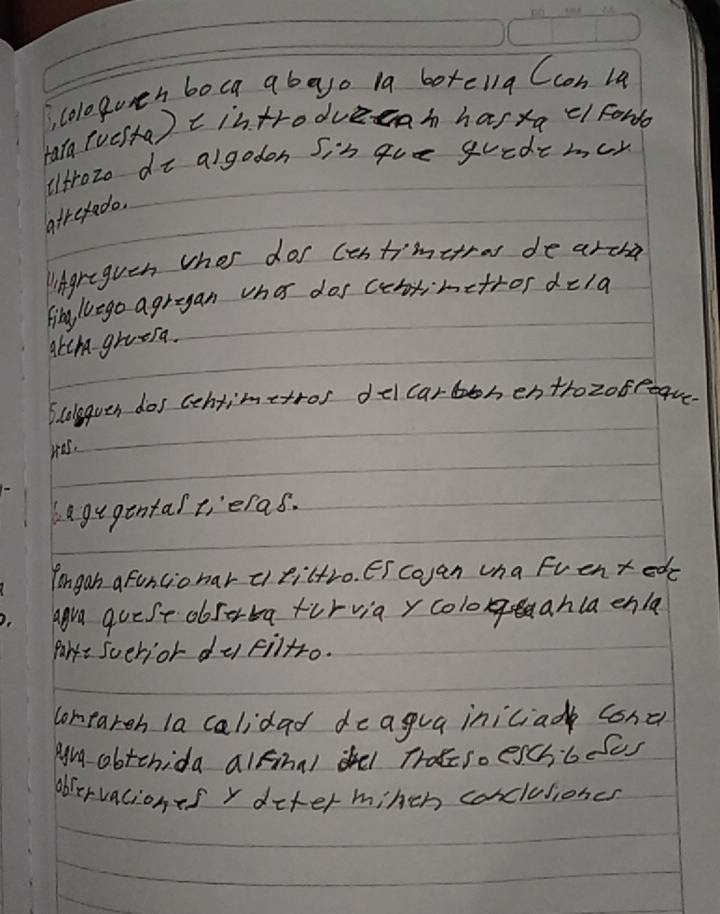 3, coloquen boca abajo la botella (con la
tapa puesta) e introduzcan hasta el fondo
el trozo de algodon sin que quede muy
apretado.
4. Agreguen unos dos centimetros de arena
fina, luego agregan unos dos centimetros de la
arena gruesa.
5. coloquen dos centimetros del carbon en trozos peque-
ños.
6. agu gental piesas.
Pongan a Funcionar el filtro. Escojan una Fuente de
agua que se obserba turvia y coloquanla en la
parte suerior del filtro.
comparen la calidad de agua iniciad con el
agua obtenida al final del Proseso escribe sus
observaciones y determinen conclusiones